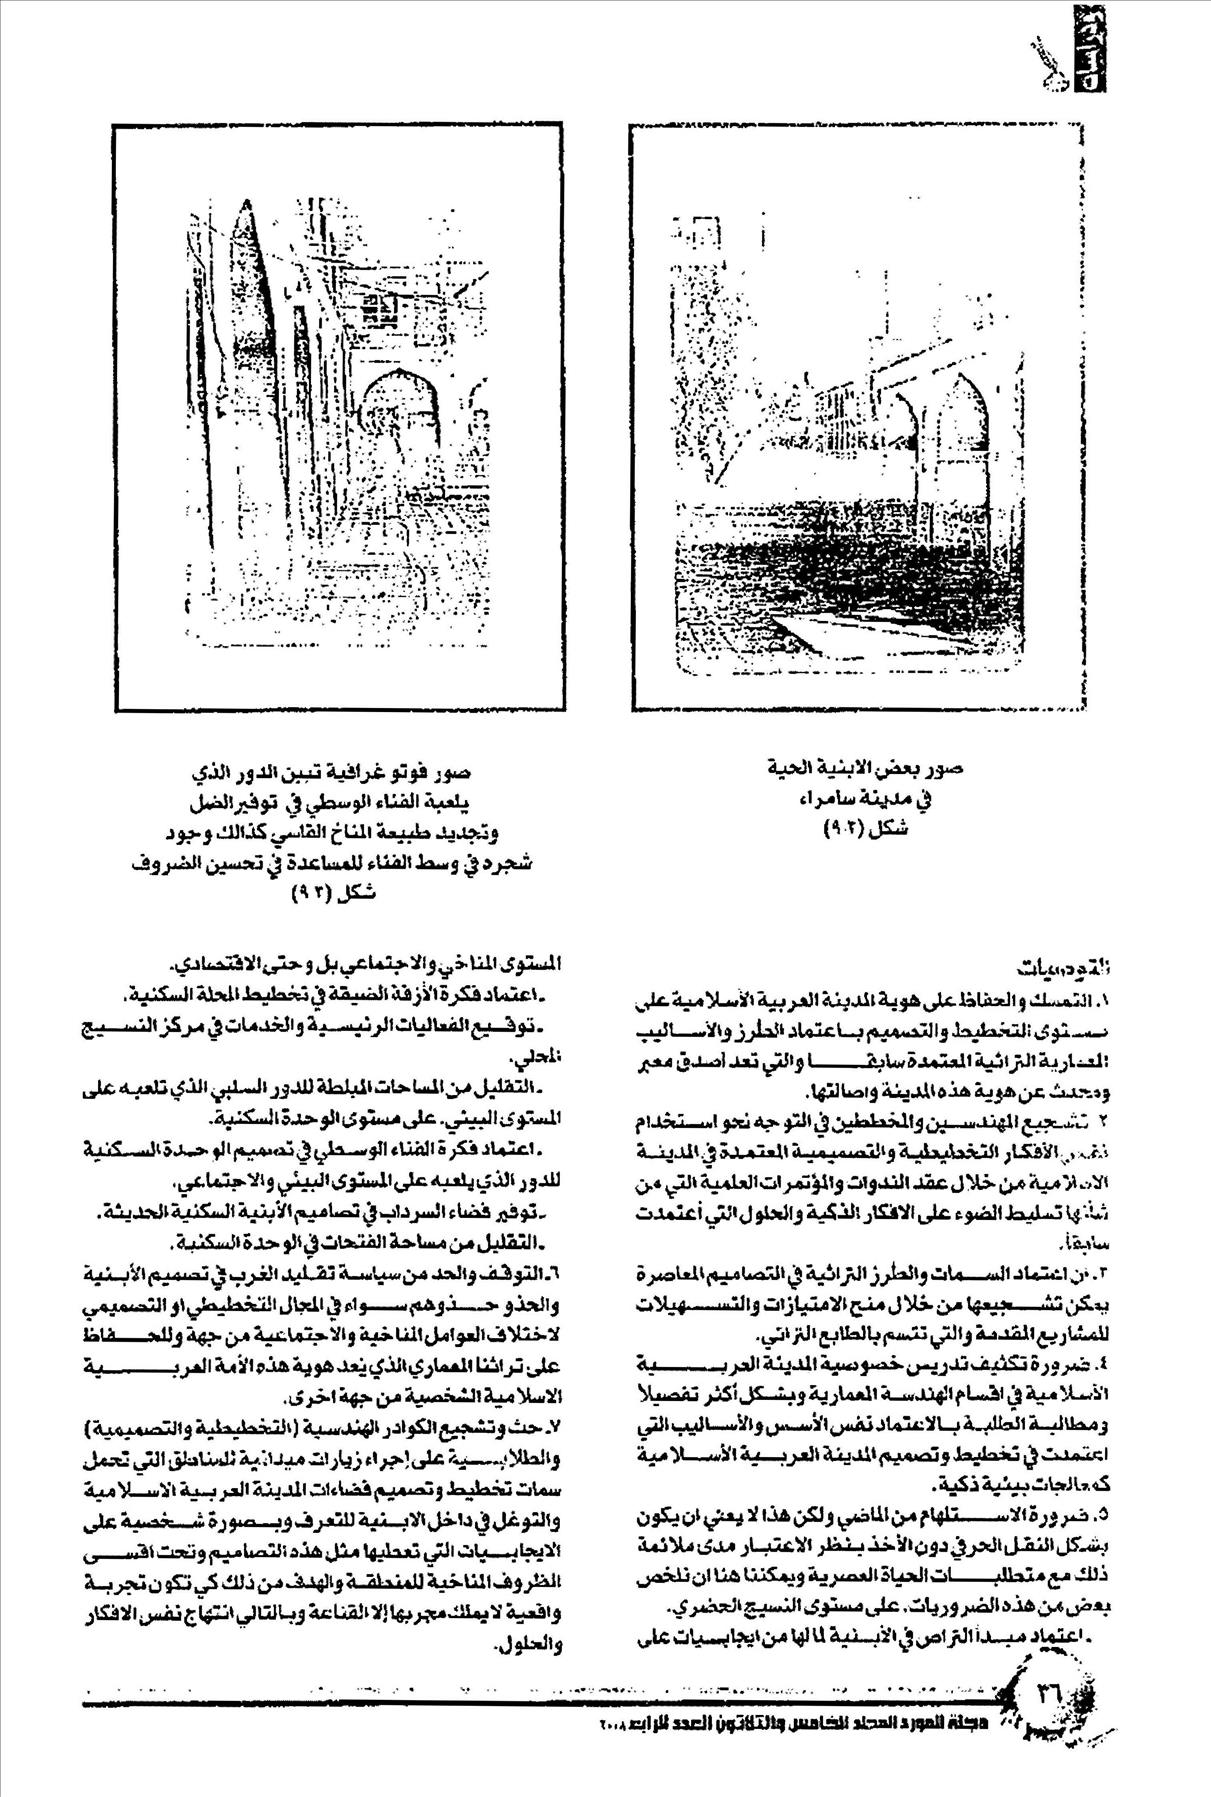 دراسات
صور بعض الابنية الحية
في مدينة سامراء
شكل (٩.٢)
صور فوتو غرافية تبين الدور الذي
يلعبة الفناء الوسطي في توفير الضل
وتجديد طبيعة المناخ القاسي كذالك وجود
شجرد في وسط الفناء للمساعدة في تحسين الضروف
شكل (٩٣)
التوصيات
١. التمسك والحفاظ على هوية المدينة العربية الأسلامية على
مستوى التخطيط والتصميم باعتماد الطرز والأساليب
المعمارية التراثية المعتمدة سابقا والتي تعد أصدق معبر
ومحدث عن هوية هذه المدينة واصالتها.
٢ تشجيع المهندسين والمخططين في التوجه نحو استخدام
نفس الأفكار التخطيطية والتصميمية المعتمدة في المدينة
الاسلامية من خلال عقد الندوات والمؤتمرات العلمية التي من
شأنها تسليط الضوء على الافكار الذكية والحلول التي أعتمدت
سابقاً.
٣. أن اعتماد السمات والطرز التراثية في التصاميم المعاصرة
يمكن تشجيعها من خلال منح الامتيازات والتسهيلات
للمشاريع المقدمة والتي تتسم بالطابع التراثي.
٤. ضرورة تكثيف تدريس خصوصية المدينة العربية
الأسلامية في اقسام الهندسة المعمارية وبشكل أكثر تفصيلا
ومطالبة الطلبة بالاعتماد نفس الأسس والأساليب التي
اعتمدت في تخطيط وتصميم المدينة العربية الأسلامية
كمعالجات بيئية ذكية.
٥. ضرورة الاستلهام من الماضي ولكن هذا لا يعني ان يكون
بشكل النقل الحرفي دون الأخذ بنظر الاعتبار مدى ملائمة
ذلك مع متطلبات الحياة العصرية ويمكننا هنا ان نلخص
بعض من هذه الضروريات. على مستوى النسيج الحضري.
. اعتماد مبدأ التراص في الأبنية لما لها من ايجابيات على
المستوى المناخي والاجتماعي بل وحتى الاقتصادي.
. اعتماد فكرة الأزقة الضيقة في تخطيط المحلة السكنية.
. توقيع الفعاليات الرئيسية والخدمات في مركز النسيج
المحلي.
. التقليل من المساحات المبلطة للدور السلبي الذي تلعبه على
المستوى البيني. على مستوى الوحدة السكنية.
. اعتماد فكرة الفناء الوسطي في تصميم الوحدة السكنية
للدور الذي يلعبه على المستوى البيئي والاجتماعي.
. توفير فضاء السرداب في تصاميم الأبنية السكنية الحديثة.
. التقليل من مساحة الفتحات في الوحدة السكنية.
٦. التوقف والحد من سياسة تقليد الغرب في تصميم الأبنية
والحذو حذوهم سواء في المجال التخطيطي او التصميمي
لاختلاف العوامل المناخية والاجتماعية من جهة وللحفاظ
على تراثنا المعماري الذي يعد هوية هذه الأمة العربية
الاسلامية الشخصية من جهة اخرى.
٧. حث وتشجيع الكوادر الهندسية (التخطيطية والتصميمية)
والطلابية على إجراء زيارات ميدانية للمناطق التي تحمل
سمات تخطيط وتصميم فضاءات المدينة العربية الاسلامية
والتوغل في داخل الابنية للتعرف وبصورة شخصية على
الايجابيات التي تعطيها مثل هذه التصاميم وتحت اقسى
الظروف المناخية للمنطقة والهدف من ذلك كي تكون تجربة
واقعية لا يملك مجربها إلا القناعة وبالتالي انتهاج نفس الافكار
والحلول.
٣٦
مجلة المورد المجلد الخامس والثلاثون العدد الرابع ٢٠٠٨